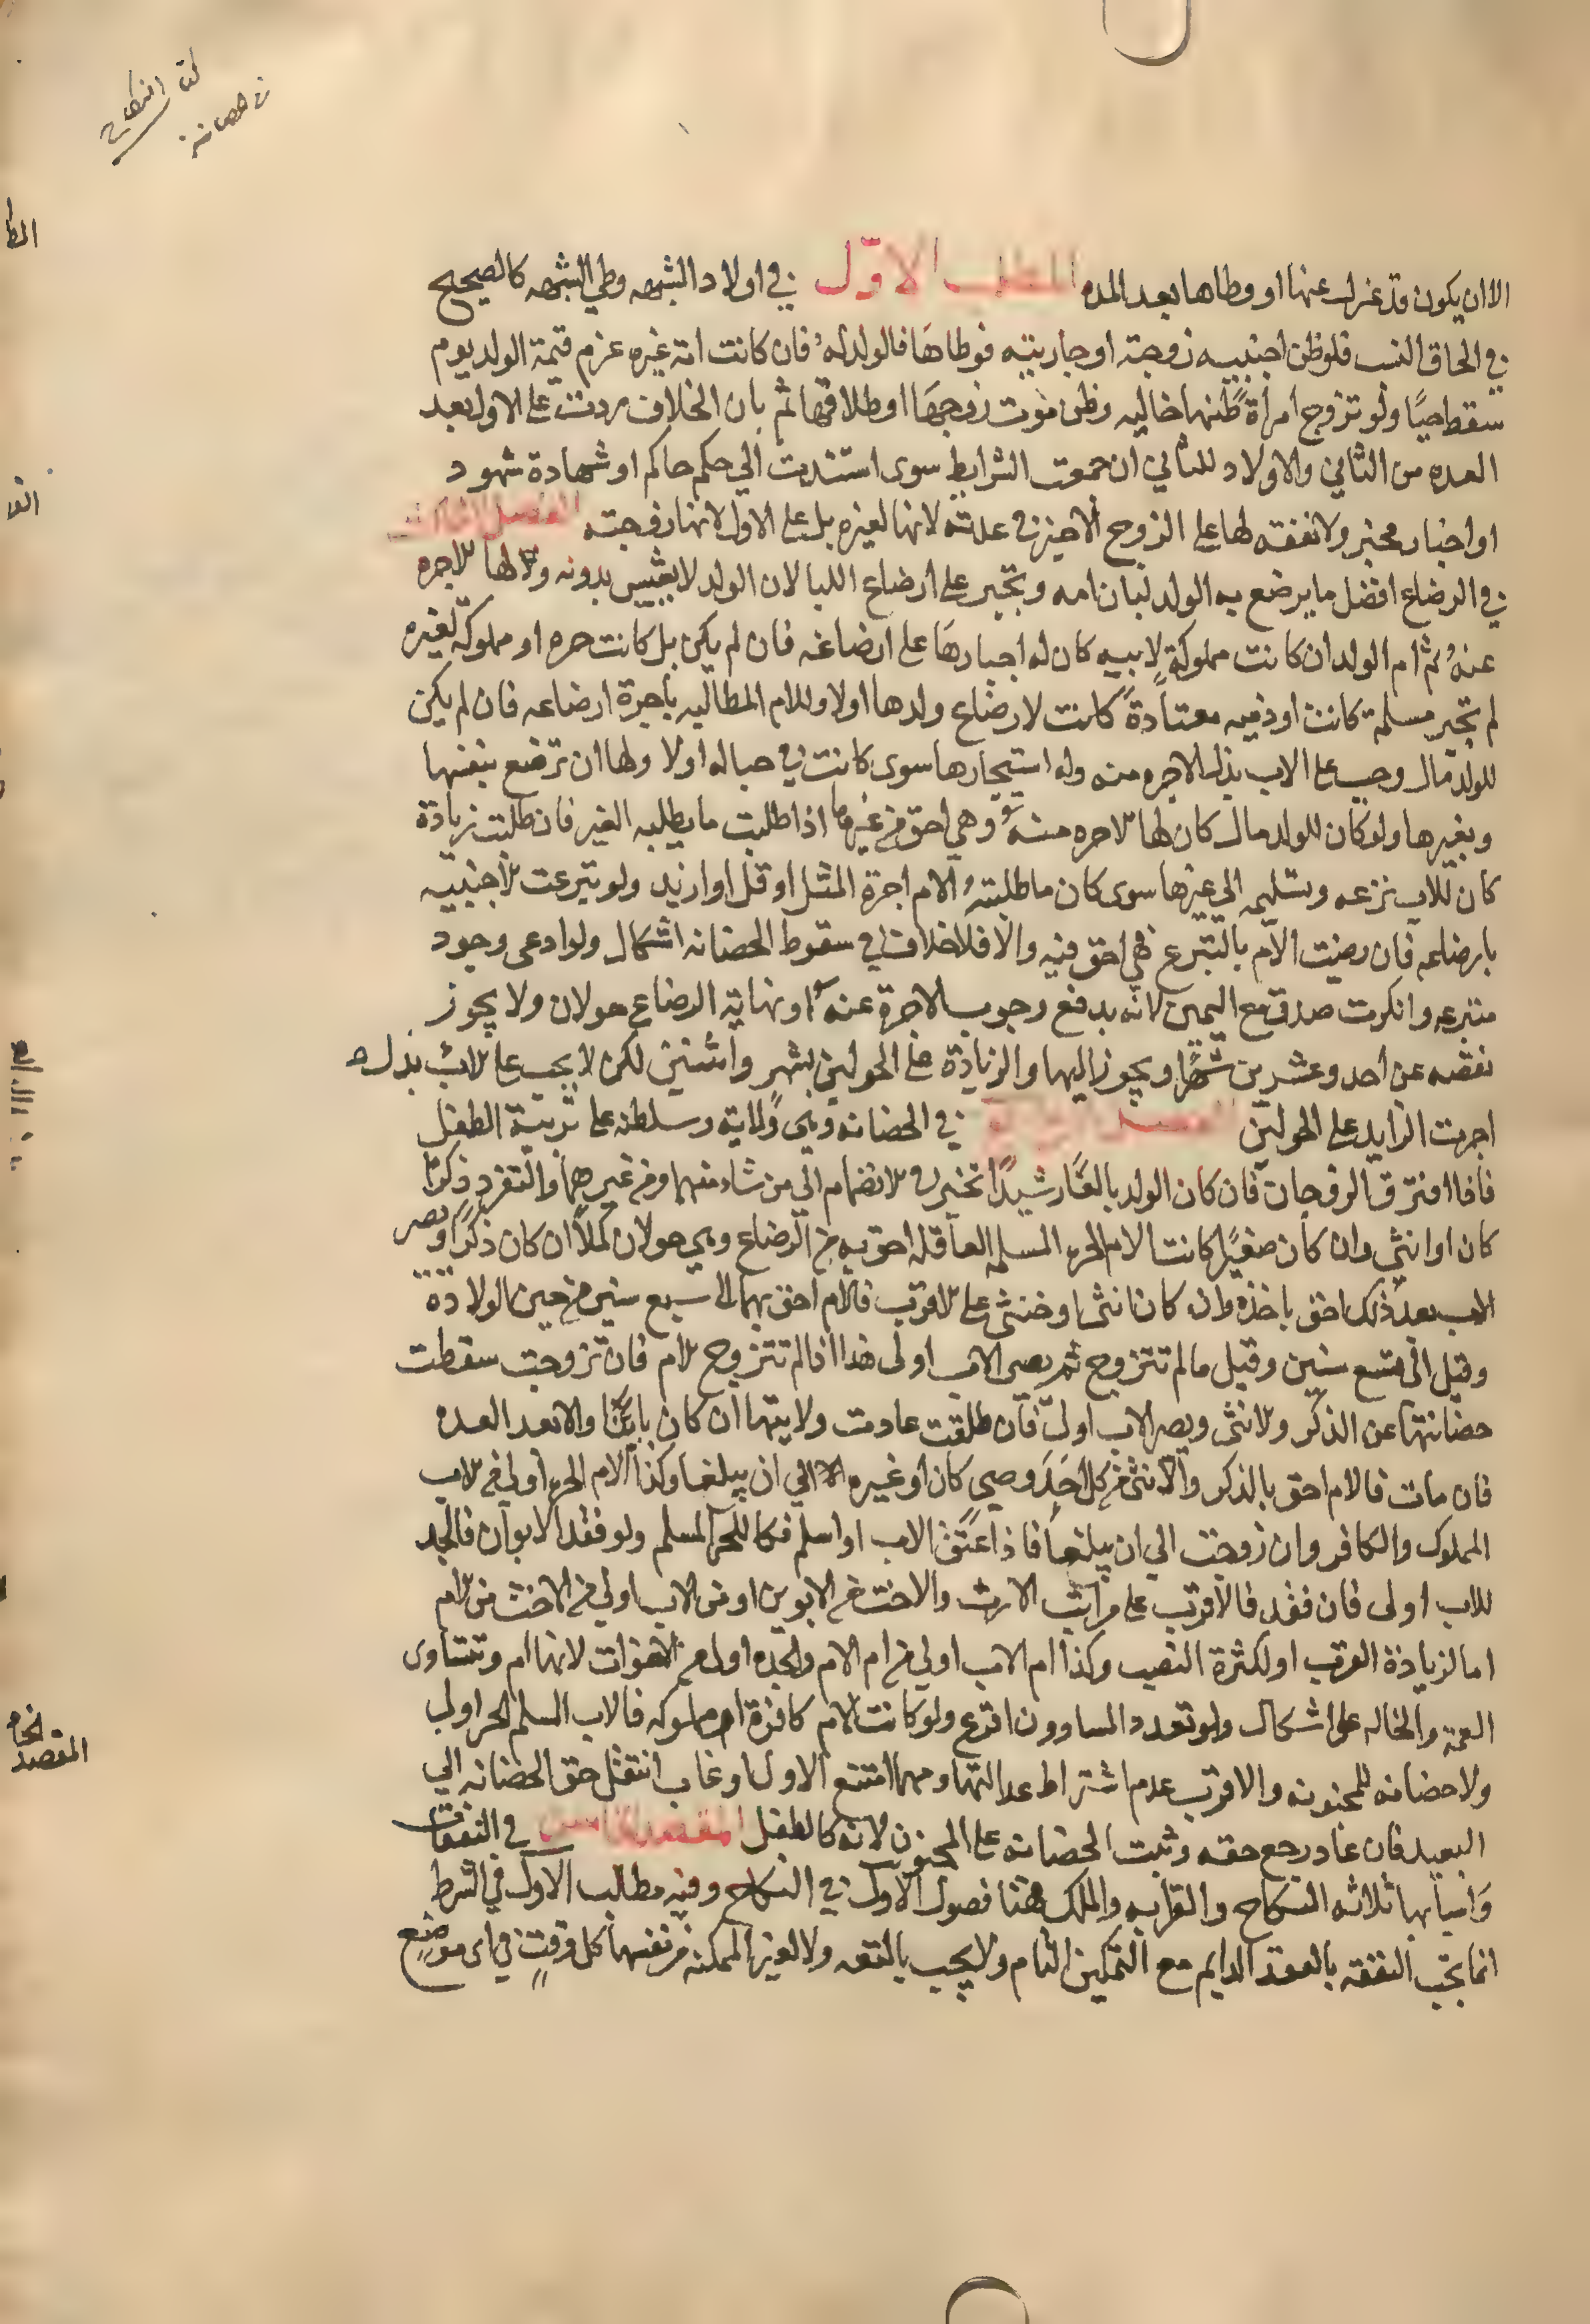 كتاب النكاح
في الحضانة
الا ان يكون قد عزل عنها او وطاها بعد المده المطلب الاوّل في اولاد الشبهه وطي الشبهه كالصحيح
في الحاق النسب فلو ظن اجنبيه زوجته او جاريته فوطاها فالولد له فان كانت امة غيره غرم قيمة الولد يوم
سقط حيًا ولو تزوج امرأة ظنها خاليه وظن موت زوجها او طلاقها ثم بان الخلاف ردت على الاول بعد
العده من الثاني والاولاد للثاني ان جمعت الشرايط سوى استندت الي حكم حاكم او شهادة شهود
او اخبار مخبر ولا نفقه لها على الزوج الاخير في عدته لانها لغيره بل على الاول لانها زوجته الفصل الثالث
في الرضاع افضل ما يرضع به الولد لبان امه وتجبر على ارضاع اللبا لان الولد لا يعيش بدونه ولها الاجره
عنه ثم ام الولد ان كانت مملوكة لابيه كان له اجبارها على ارضاعه فان لم يكن بل كانت حره او مملوكه لغيره
لم تجبر مسلمة كانت او ذميه معتادة كانت لارضاع ولدها اولا وللام المطالبه باجرة ارضاعه فان لم يكن
للولد مال وجب على الاب بذل الاجره منه وله استيجارها سوى كانت في حباله اولا ولها ان ترضع بنفسها
وبغيرها ولو كان للولد مال كان لها الاجره منه وهي احق من غيرها اذا طلبت ما يطلبه الغير فان طلبت زيادة
كان للاب نزعه وتسليمه الي غيرها سوى كان ما طلبته الام اجرة المثل او اقل او ازيد ولو تبرعت الاجنبيه
بارضاعه فان رضيت الام بالتبرع فهي احق فيه والا فلا خلاف في سقوط الحضانه اشكال ولو ادعى وجود
متبرعه وانكرت صدق مع اليمين لانه يدفع وجوب الاجرة عنه ونهاية الرضاع حولان ولا يجوز
نقصه عن احد وعشرين شهرًا ويجوز اليها والزيادة على الحولين بشهر واثنين لكن لا يجب على الاب بذل
اجرت الزايد على الحولين الفصل الرابع في الحضانه وهي ولاية وسلطنه على تربية الطفل
فاذا افترق الزوجان فان كان الولد بالغًا رشيدًا تخير في الانضمام الي من شاء منهما ومن غيرهما والتفرد ذكرًا
كان او انثى وان كان صغيرًا كانت الام الحره المسلمه العاقله احق به من الرضاع وهي حولان كملًا ان كان ذكرًا ويصير
الاب بعد ذلك احق باخذه وان كان انثى او خنثى على الاقرب فالام احق بهما الى سبع سنين من حين الولادة
وقيل الى تسع سنين وقيل ما لم تتزوج ثم يصير الاب اولى هذا اذا لم تتزوج الام فان تزوجت سقطت
حضانتها عن الذكر والانثى ويصير الاب اولى فان طلقت عادت ولايتها ان كان باينًا والا بعد العده
فان مات فالام احق بالذكر والانثى من كل احد وصي كان او غيره الي ان يبلغا وكذا الام الحره اولى من الاب
المملوك والكافر وان زوجت الي ان يبلغا فاذا عتق الاب او اسلم فكالحر المسلم ولو فقد الابوان فالجد
للاب اولى فان فقد فالاقرب على مراتب الارث والاخت من الابوين او من الاب اولي من الاخت من الام
اما لزيادة القرب او لكثرة النصيب وكذا ام الاب اولي من ام الام والجده اولى من الاخوات لانها ام وتتساوى
العمة والخاله على اشكال ولو تعدد المساوون اقرع ولو كانت الام كافرة او مملوكه فالاب المسلم الحر اولي
ولا حضانه للمجنونه والاقرب عدم اشتراط عدالتها ومهما امتنع الاولى او غاب انتقل حق الحضانه الي
البعيد فان عاد رجع حقه وثبت الحضانه على المجنون لانه كالطفل المقصد الخامس في النفقات
واسبابها ثلاثه النكاح والقرابه والملك فهنا فصول الاول في النكاح وفيه مطالب الاول في الشرط
انما تجب النفقه بالعقد الدايم مع التمكين التام ولا يجب بالمتعه ولا لغير الممكنه من نفسها كل وقتٍ في اى موضعٍ
المقصد